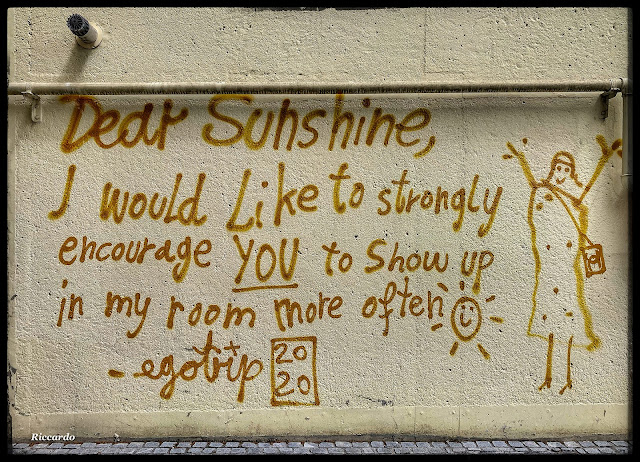 Dear Sunshine,
I would Like to strongly
encourage YOU to show up
in my room more often
- egotrip 20
20
Riccardo